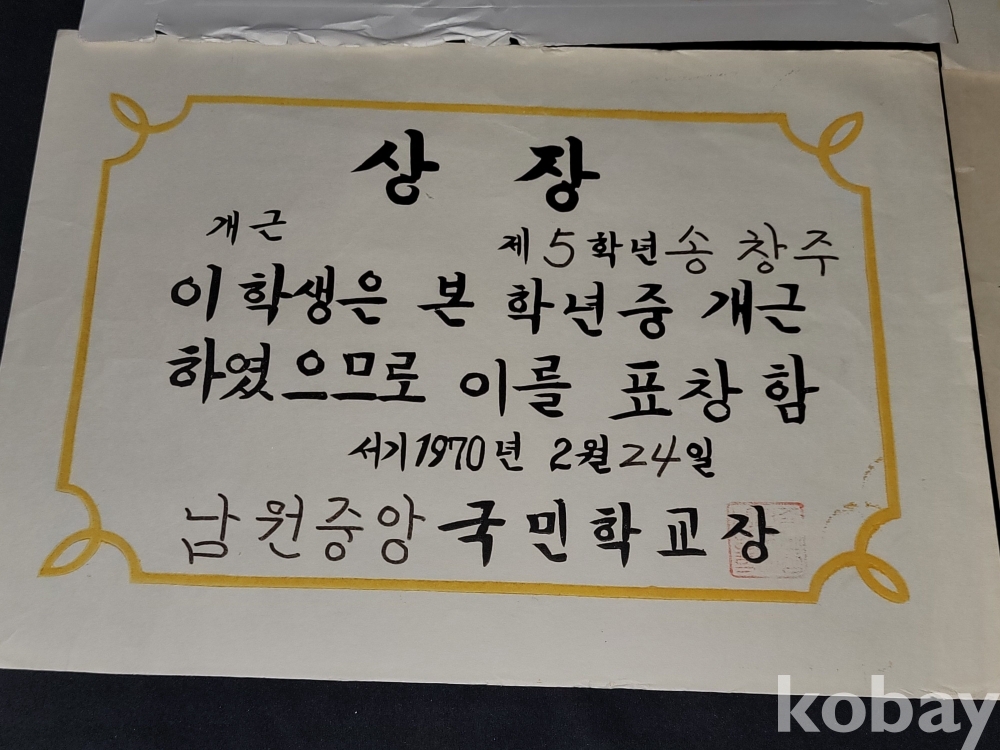 상 장
개근
제5학년 송 창주
이 학생은 본 학년중 개근
하였으므로 이를 표창함
서기1970년 2월24일
남원중앙국민학교장
kobay